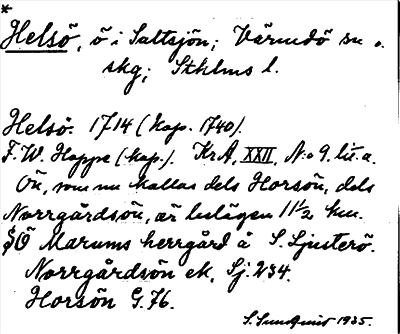 *
Helsö, ö i Saltsjön; Värmdö sn o.
skg; Sthlms l.
Helsö. 1714 (kop. 1740).
F. W. Hoppe (kop.). KrA, XXII, N:o 9. lit. a.
Ön, som nu kallas dels Horsön, dels
Norrgårdsön, är belägen 11½ km.
SÖ Marums herrgård å S. Ljusterö.
Norrgårdsön ek. Sj. 234.
Horsön G. 76.
S. Sundquist 1935.